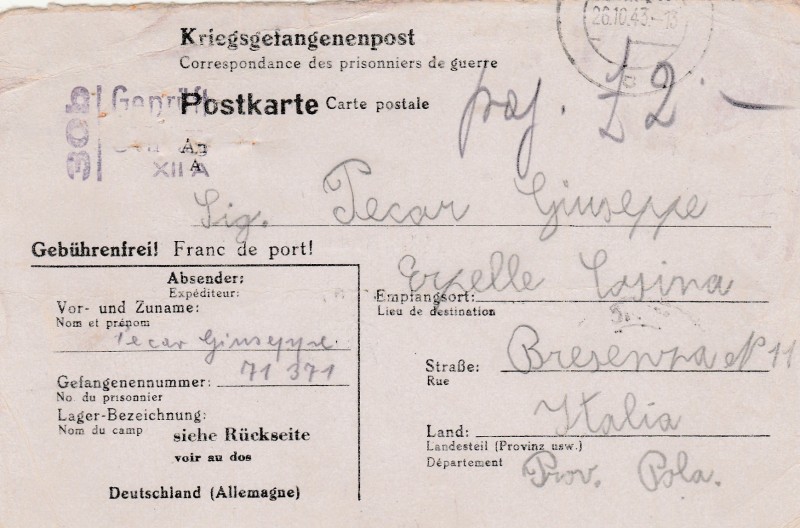 26.10.43.-13
Kriegsgefangenenpost
Correspondance des prisonniers de guerre
Postkarte Carte postale
Geprüft
308
XII A
An
A
Sig. Pecar Giuseppe
Gebührenfrei! Franc de port!
Absender:
Expéditeur:
Vor- und Zuname:
Nom et prénom
Pecar Giuseppe.
Gefangenennummer: 71 371
No. du prisonnier
Lager-Bezeichnung:
Nom du camp
siehe Rückseite
voir au dos
Deutschland (Allemagne)
Empfangsort:
Lieu de destination
Straße:
Rue
N 11
Italia
Land:
Landesteil (Provinz usw.)
Département
Prov. Pola.